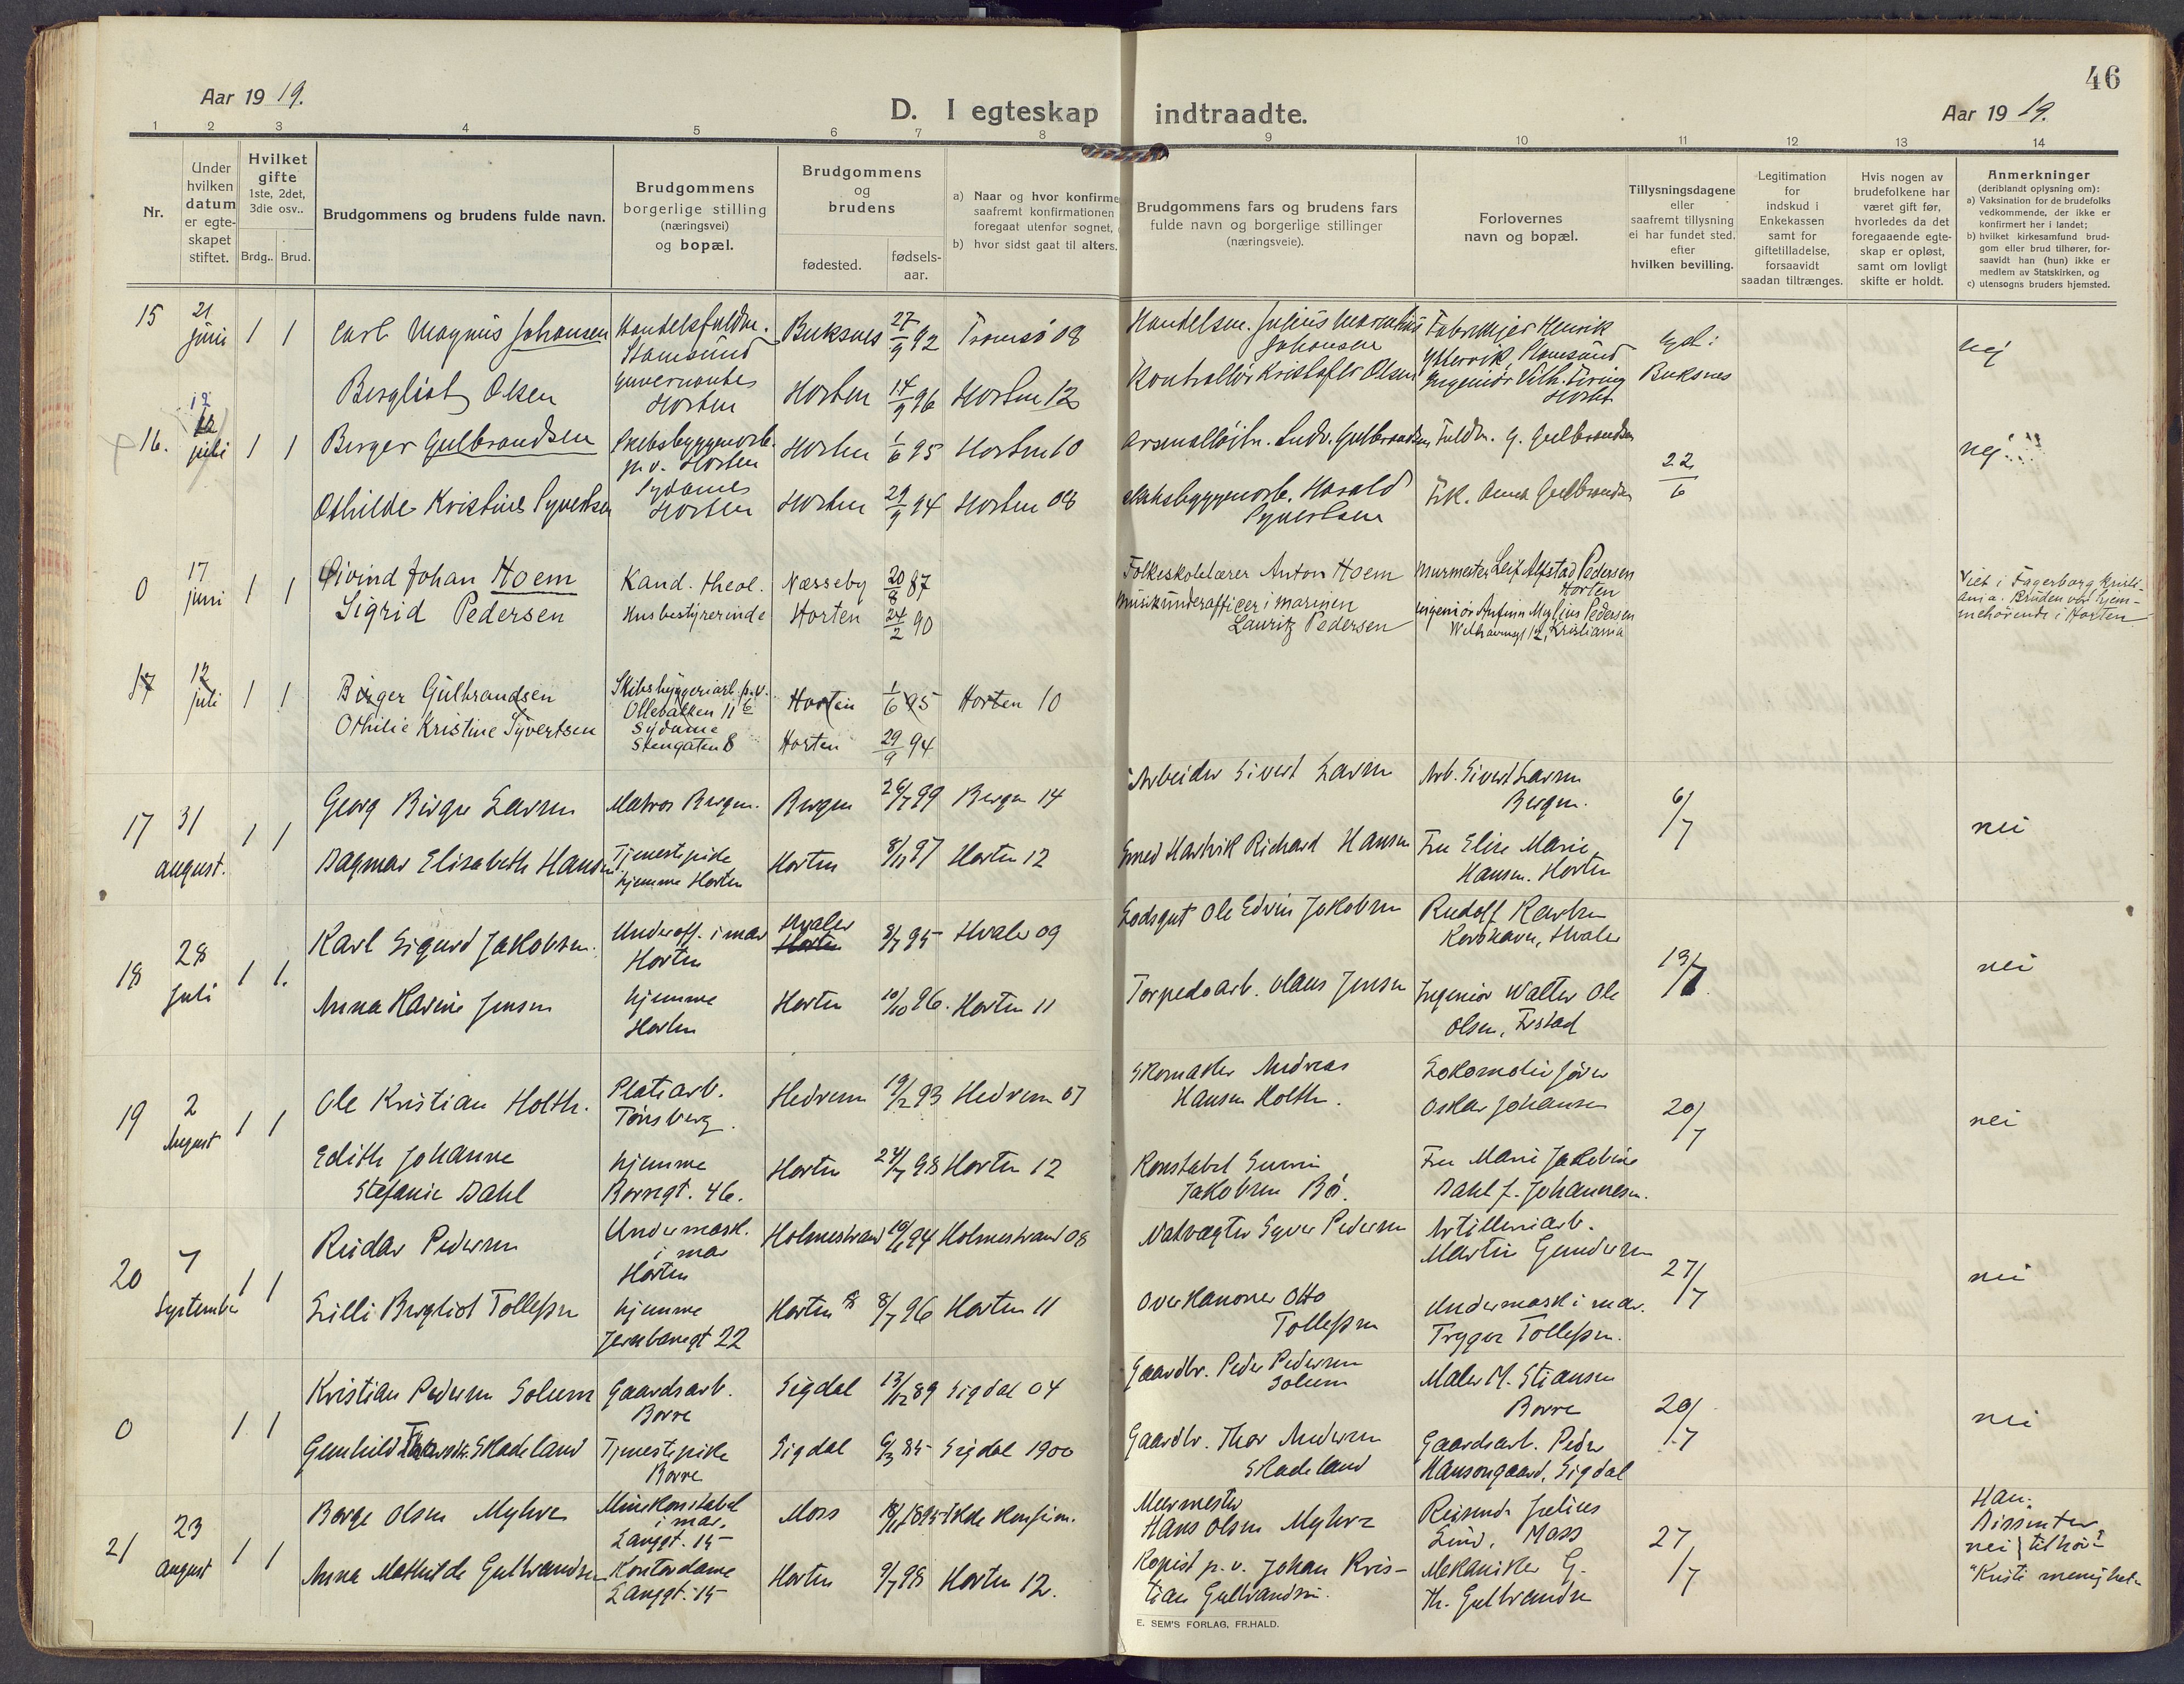 46
Aar 19 19.
D. I egteskap indtraadte.
Aar 19 19.
1 2 3 4 5 6 7 8 9 10 11 12 13 14
Nr.
Under hvilken datum er egteskapet stiftet.
Hvilket gifte 1ste, 2det, 3die osv..
Brdg.. Brud.
Brudgommens og brudens fulde navn.
Brudgommens borgerlige stilling (næringsvei) og bopæl.
Brudgommens og brudens
fødested.
fødsels-aar.
a) Naar og hvor konfirme
saafremt konfirmationen
foregaat utenfor sognet,
b) hvor sidst gaat til alters.
Brudgommens fars og brudens fars
fulde navn og borgerlige stillinger
(næringsveie).
Forlovernes
navn og bopæl.
Tillysningsdagene
eller
saafremt tillysning
ei har fundet sted.
efter
hvilken bevilling.
Legitimation
for
indskud i
Enkekassen
samt for
giftetilladelse,
forsaavidt
saadan tiltrænges.
Hvis nogen av
brudefolkene har
været gift før,
hvorledes da det
foregaaende egte-
skap er opløst,
samt om lovligt
skifte er holdt.
Anmerkninger
(deriblandt oplysning om):
a) Vaksination for de brudefolks
vedkommende, der ikke er
konfirmert her i landet;
b) hvilket kirkesamfund brud-
gom eller brud tilhører, for-
saavidt han (hun) ikke er
medlem av Statskirken, og
c) utensogns bruders hjemsted.
15 21 juni 1 1 Carl Magnus Johansen Handelsfuldm. Stamsund Buksnes 27/9 92 Tromsö 08 Handelsm. Julius Johansen Fabrikkjer Henrik Stamsund Buksnes nej
Bergliot Olsen Guvernante Horten Horten 14/9 96 Horten 12 Kontrollör Kristofer Olsen Ingeniör Vilh.
16. 12 juli 1 1 Birger Gulbrandsen Skibsbyggerarb. p.v. Horten Horten 1/6 95 Horten 10 Arsenallöitn. Ludv. Gulbrandsen Fuldm. G. Gulbrandsen 22/6 nej
Othilde Kristine Syvertsen Sydame Horten Horten 29/9 94 Horten 08 Skibsbyggerarb. Harald Syvertsen Frk. Anna Gulbrandsen
0 17 juni 1 1 Øivind Johan Hoem Kand. theol. Næsseby 20/8 87 Folkeskolelærer Anton Hoem Murmester Leif Alfstad Pedersen Horten
Sigrid Pedersen Husbestyrerinde Horten 24/2 90 Musikunderofficer i marinen Lauritz Pedersen Ingeniör Anton Mylius Pedersen Kristiania
Viet i Fagerborg Kristi-
ania. Bruden var hjem-
mehörende i Horten
17 12 juli 1 1 Birger Gulbrandsen Skibsbyggeriarb. p.v. Ollebakken 11 Horten 1/6 95 Horten 10
Othilie Kristine Syvertsen Sydame Stengaten 8 Horten 29/9 94
17 31 august. 1 1 Georg Birger Larsen Matros Bergen. Bergen 26/7 99 Bergen 14 Arbeider Sivert Larsen Arb. Sivert Larsen Bergen. 6/7 nei
Dagmar Elisabeth Hansen Tjenestepike hjemme Horten Horten 8/11 97 Horten 12 Smed Hartvik Richard Hansen Fru Elise Marie Hansen. Horten
18 28 Juli 1 1. Karl Sigurd Jakobsen. Underoff. i mar Horten Hvaler Horten 8/7 95 Hvaler 09 Lodsgut Ole Edvin Jakobsen Rudolf Karlsen Hvaler 13/7. nei
Anna Karine Jensen hjemme Horten Horten 10/10 96. Horten 11 Torpedoarb. Olaus Jensen Ingeniör Walter Ole Olsen,
19 2 August 1 1 Ole Kristian Holth. Platearb. Tönsberg. Hedrum 19/2 93 Hedrum 07 Skomaker Andreas Hansen Holth. Lokomotivförer Oskar Johansen 20/7 nei
Edith Johanne Stefanie Dahl hjemme Borregt. 46. Horten 24/7 98 Horten 12 Konstabel Jakobsen Bö. Fru Marie Jakobine Dahl f. Johannesen.
20 7 September 1 1 Reidar Pedersen Undermask. i mar Horten Holmestrand 10/6 94 Holmestrand 08 Natvægter Syver Pedersen Artilleriarb. Martin Gundersen 27/7 nei
Lilli Bergliot Tollefsen hjemme Jernbanegt 22 Horten 8/7 96 Horten 11 Overkanoner Otto Tollefsen Undermask i mar. Trygve Tollefsen.
0 1 1 Kristian Pedersen Solum Gaardsarb. Borre Sigdal 13/12 89 Sigdal 04 Gaardbr. Peder Pedersen Solum Maler M. Stiansen Borre 20/7 nei
Gunhild Skadeland Tjenestepike Borre Sigdal 6/3 85 Sigdal 1900 Gaardbr. Thor Andersen Skadeland Gaardsarb. Peder Hansongaard, Sigdal
21 23 august 1 1 Borge Olsen Myhre Minekonstabel i mar. Langgt. 15 Moss 18/11 1895 Ikke konfirm. Murmester Hans Olsen Myhre Julius Lund, Moss 27/7 Han: Dissenter nei tilhör
Anna Mathilde Gulbrandsen Kontordame Langgt. 15 Horten 9/7 98 Horten 12. Kopist p.v. Johan Kristian Gulbrandsen. Mekaniker G. Th. Gulbrandsen "Kristi menighet"
E. SEM'S FORLAG, FR.HALD.